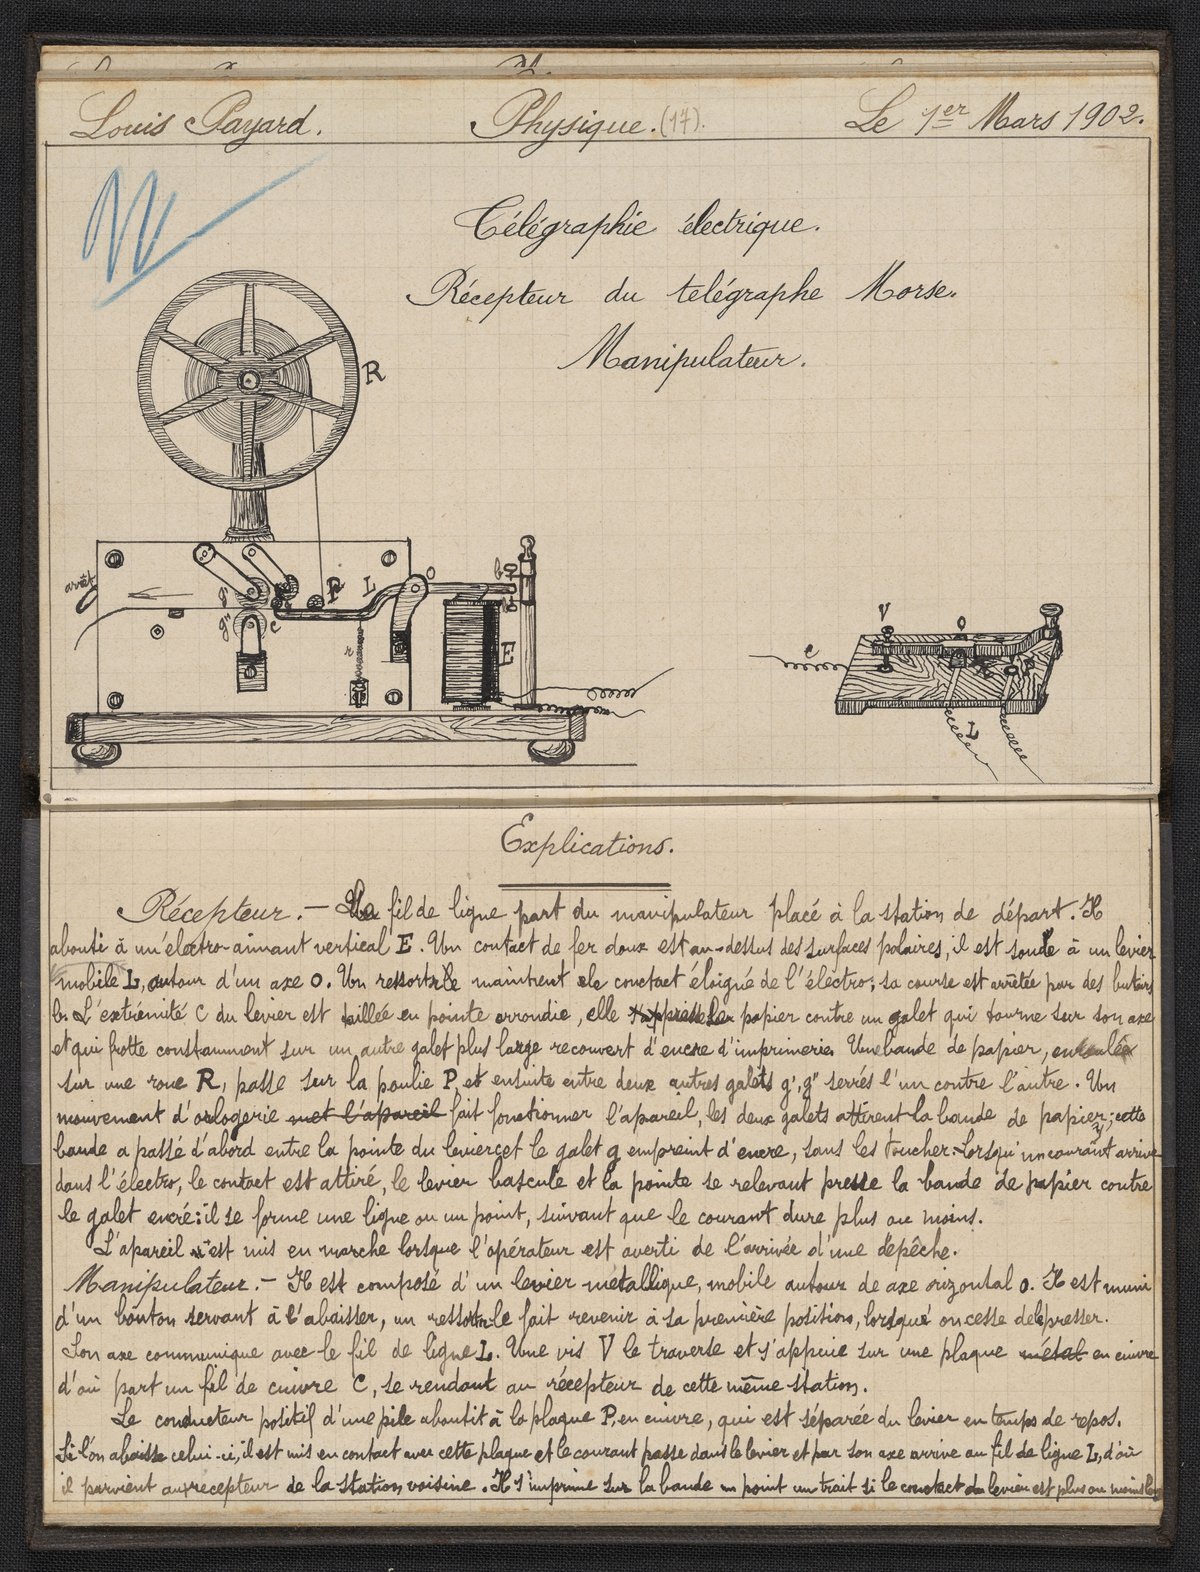 Louis Payard. Physique. (17). Le 1er Mars 1902.
Télégraphie électrique.
Récepteur du telégraphe Morse.
Manipulateur.
R
arrêt
g'
g"
c
P
L
O
b
r
E
V
O
c
P
L
Explications.
Récepteur. — Un fil de ligne part du manipulateur placé à la station de départ. Il
abouti à un électro-aimant vertical E. Un contact de fer doux est au-dessus des surfaces polaires, il est soudé à un levier
mobile L, autour d'un axe O. Un ressort r le maintient le contact éloigné de l'électro; sa course est arrêtée par des butoirs
b. L'extrémité C du levier est taillée en pointe arrondie, elle presse le papier contre un galet qui tourne sur son axe
et qui frotte constamment sur un autre galet plus large recouvert d'encre d'imprimerie. Une bande de papier, enroulée
sur une roue R, passe sur la poulie P, et ensuite entre deux autres galets g', g" serrés l'un contre l'autre. Un
mouvement d'orlogerie met l'apareil fait fonctionner l'apareil, les deux galets attirent la bande de papier; cette
bande a passé d'abord entre la pointe du levier c et le galet g empreint d'encre, sans les toucher. Lorsqu'un courant arrive
dans l'électro, le contact est attiré, le levier bascule et la pointe se relevant presse la bande de papier contre
le galet encré: il se forme une ligne ou un point, suivant que le courant dure plus ou moins.
L'apareil n'est mis en marche lorsque l'opérateur est averti de l'arrivée d'une depêche.
Manipulateur. — Il est composé d'un levier métallique, mobile autour de axe orizontal o. Il est muni
d'un bouton servant à l'abaisser, un ressort r le fait revenir à sa première position, lorsqué on cesse de le presser.
Son axe communique avec le fil de ligne L. Une vis V le traverse et s'appuie sur une plaque métal en cuivre
d'où part un fil de cuivre C, se rendant au récepteur de cette même station.
Le conducteur positif d'une pile aboutit à la plaque P, en cuivre, qui est séparée du levier en temps de repos.
Si l'on abaisse celui-ci, il est mis en contact avec cette plaque et le courant passe dans le levier et par son axe arrive au fil de ligne L, d'où
il parvient au recepteur de la station voisine. Il s'imprime sur la bande un point un trait si le contact du levier est plus ou moins long